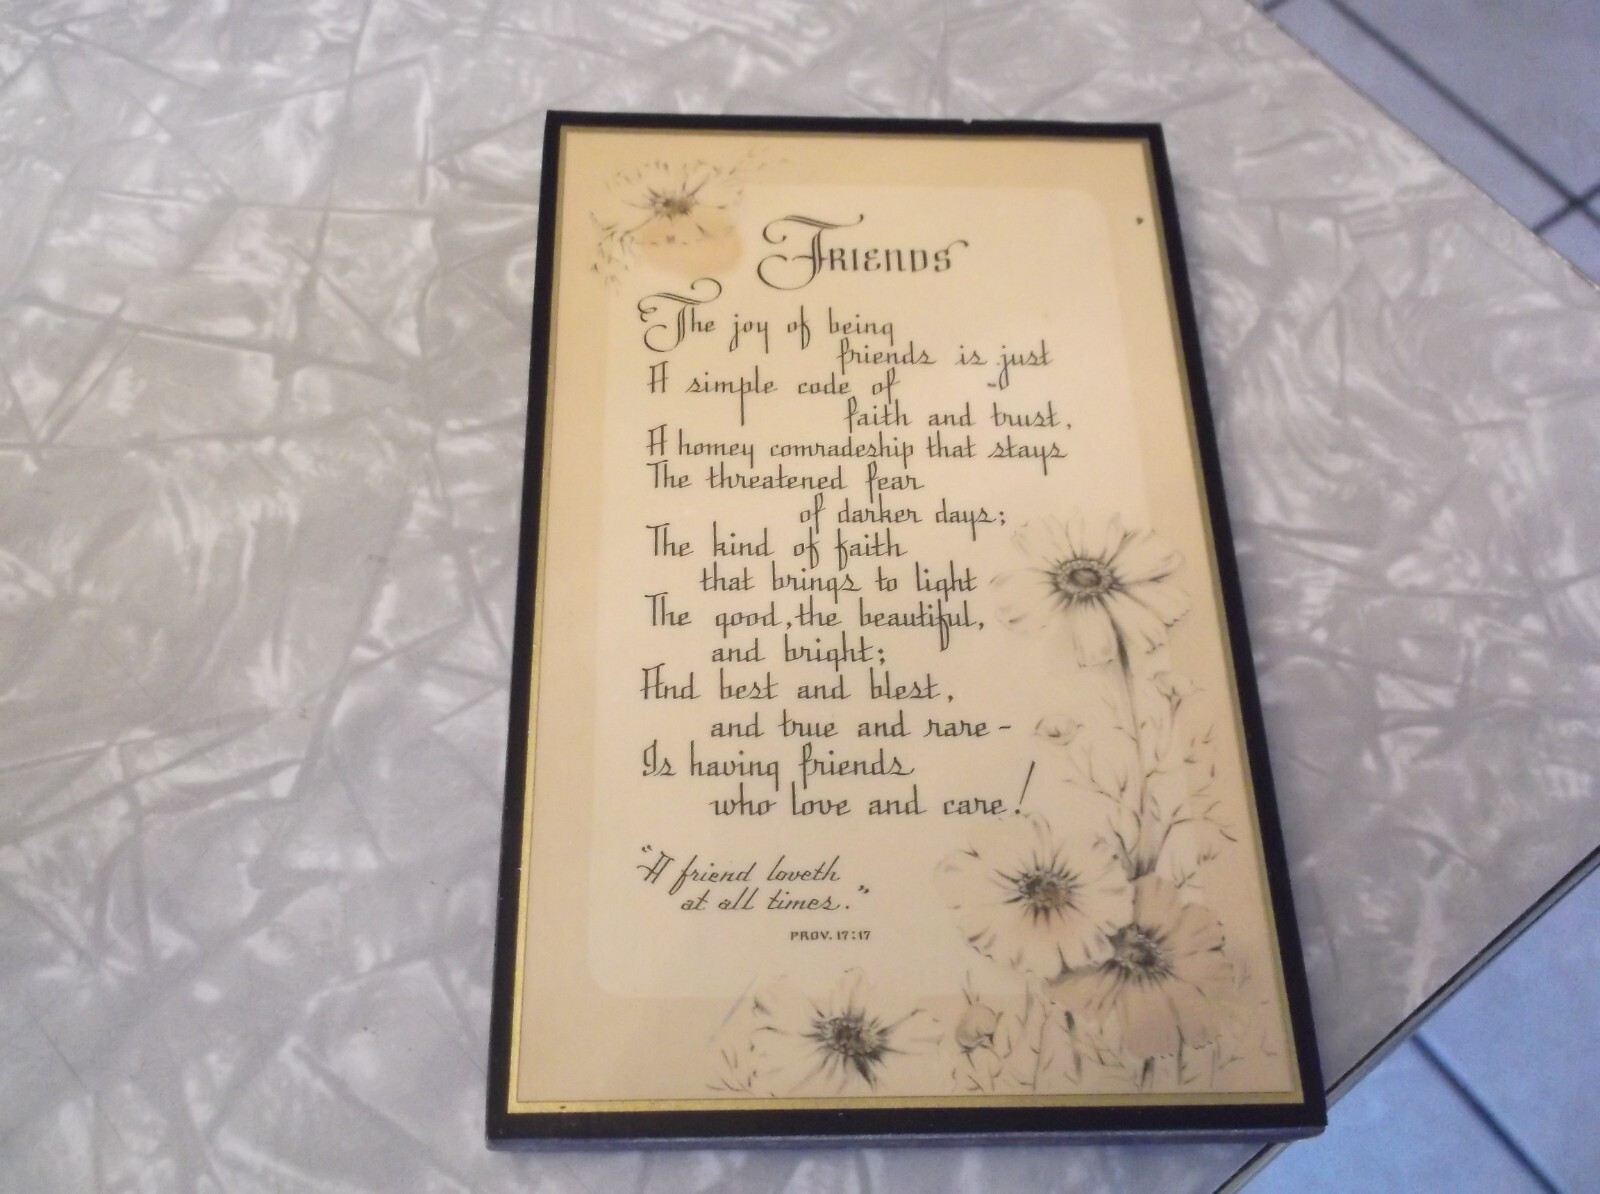 FRIENDS
The joy of being
friends is just
A simple code of
faith and trust,
A homey comradeship that stays
The threatened fear
of darker days;
The kind of faith
that brings to light
The good, the beautiful,
and bright;
And best and blest,
and true and rare -
Is having friends
who love and care!
"A friend loveth
at all times."
PROV. 17:17